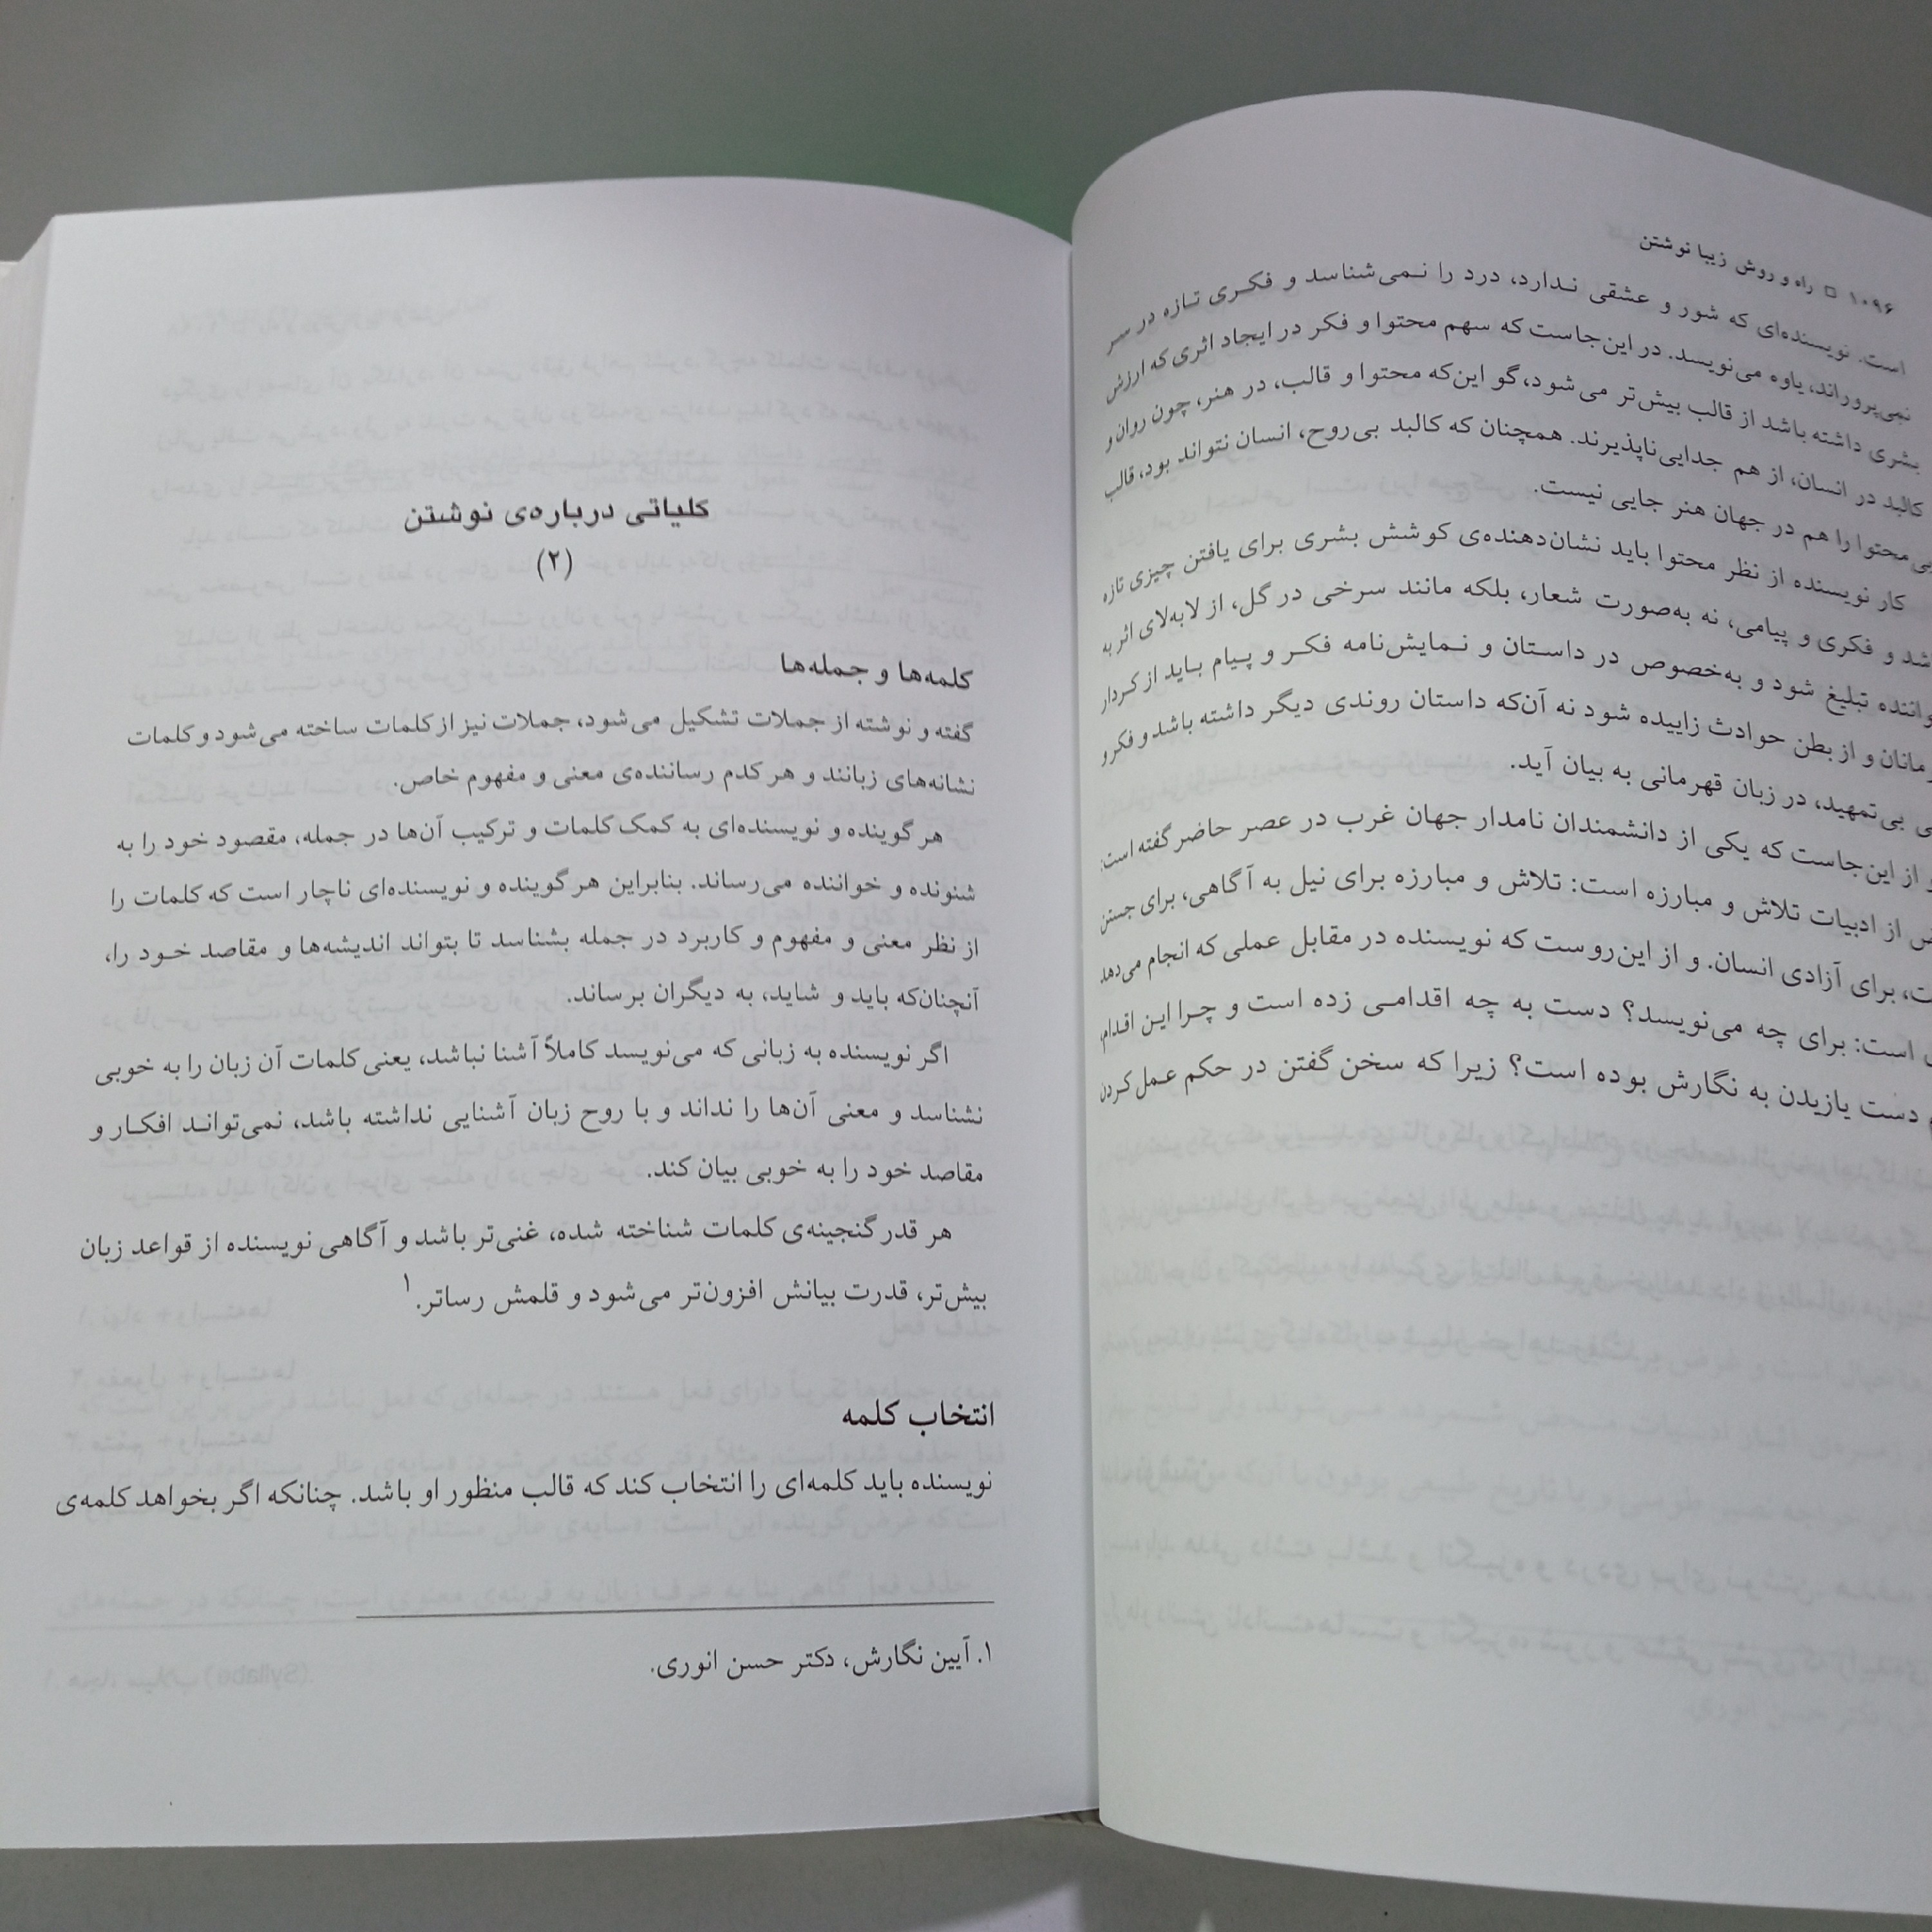 ۱۰۹۶ □ راه و روش زیبا نوشتن
است. نویسنده‌ای که شور و عشقی ندارد، درد را نـمی‌شناسد و فکـری تـازه در سـر
نمی‌پروراند، یاوه می‌نویسد. در این‌جاست که سهم محتوا و فکر در ایجاد اثری که ارزش
بشری داشته باشد از قالب بیش‌تر می‌شود، گو این‌که محتوا و قالب، در هنر، چون روان و
کالبد در انسان، از هم جدایی‌ناپذیرند. همچنان که کالبد بی‌روح، انسان نتواند بود، قالب
بی‌محتوا را هم در جهان هنر جایی نیست.
کار نویسنده از نظر محتوا باید نشان‌دهنده‌ی کوشش بشری برای یافتن چیزی تازه
و فکری و پیامی، نه به‌صورت شعار، بلکه مانند سرخی در گل، از لابه‌لای اثر به
تبلیغ شود و به‌خصوص در داستان و نـمایش‌نامه فکـر و پـیام بـاید از کـردار
و از بطن حوادث زاییده شود نه آن‌که داستان روندی دیگر داشته باشد و فکر و
بی‌تمهید، در زبان قهرمانی به بیان آید.
از این‌جاست که یکی از دانشمندان نامدار جهان غرب در عصر حاضر گفته است:
از ادبیات تلاش و مبارزه است: تلاش و مبارزه برای نیل به آگاهی، برای جستن
برای آزادی انسان. و از این‌روست که نویسنده در مقابل عملی که انجام می‌دهد
است: برای چه می‌نویسد؟ دست به چه اقدامـی زده است و چـرا ایـن اقـدام،
دست یازیدن به نگارش بوده است؟ زیرا که سخن گفتن در حکم عمل کردن
کلیاتی درباره‌ی نوشتن
(۲)
کلمه‌ها و جمله‌ها
گفته و نوشته از جملات تشکیل می‌شود، جملات نیز از کلمات ساخته می‌شود و کلمات
نشانه‌های زبانند و هر کدم رساننده‌ی معنی و مفهوم خاص.
هر گوینده و نویسنده‌ای به کمک کلمات و ترکیب آن‌ها در جمله، مقصود خود را به
شنونده و خواننده می‌رساند. بنابراین هر گوینده و نویسنده‌ای ناچار است که کلمات را
از نظر معنی و مفهوم و کاربرد در جمله بشناسد تا بتواند اندیشه‌ها و مقاصد خـود را،
آنچنان‌که باید و شاید، به دیگران برساند.
اگر نویسنده به زبانی که می‌نویسد کاملاً آشنا نباشد، یعنی کلمات آن زبان را به خوبی
نشناسد و معنی آن‌ها را نداند و با روح زبان آشنایی نداشته باشد، نمی‌توانـد افکـار و
مقاصد خود را به خوبی بیان کند.
هر قدر گنجینه‌ی کلمات شناخته شده، غنی‌تر باشد و آگاهی نویسنده از قواعد زبان
بیش‌تر، قدرت بیانش افزون‌تر می‌شود و قلمش رساتر.۱
انتخاب کلمه
نویسنده باید کلمه‌ای را انتخاب کند که قالب منظور او باشد. چنانکه اگر بخواهد کلمه‌ی
۱. آیین نگارش، دکتر حسن انوری.